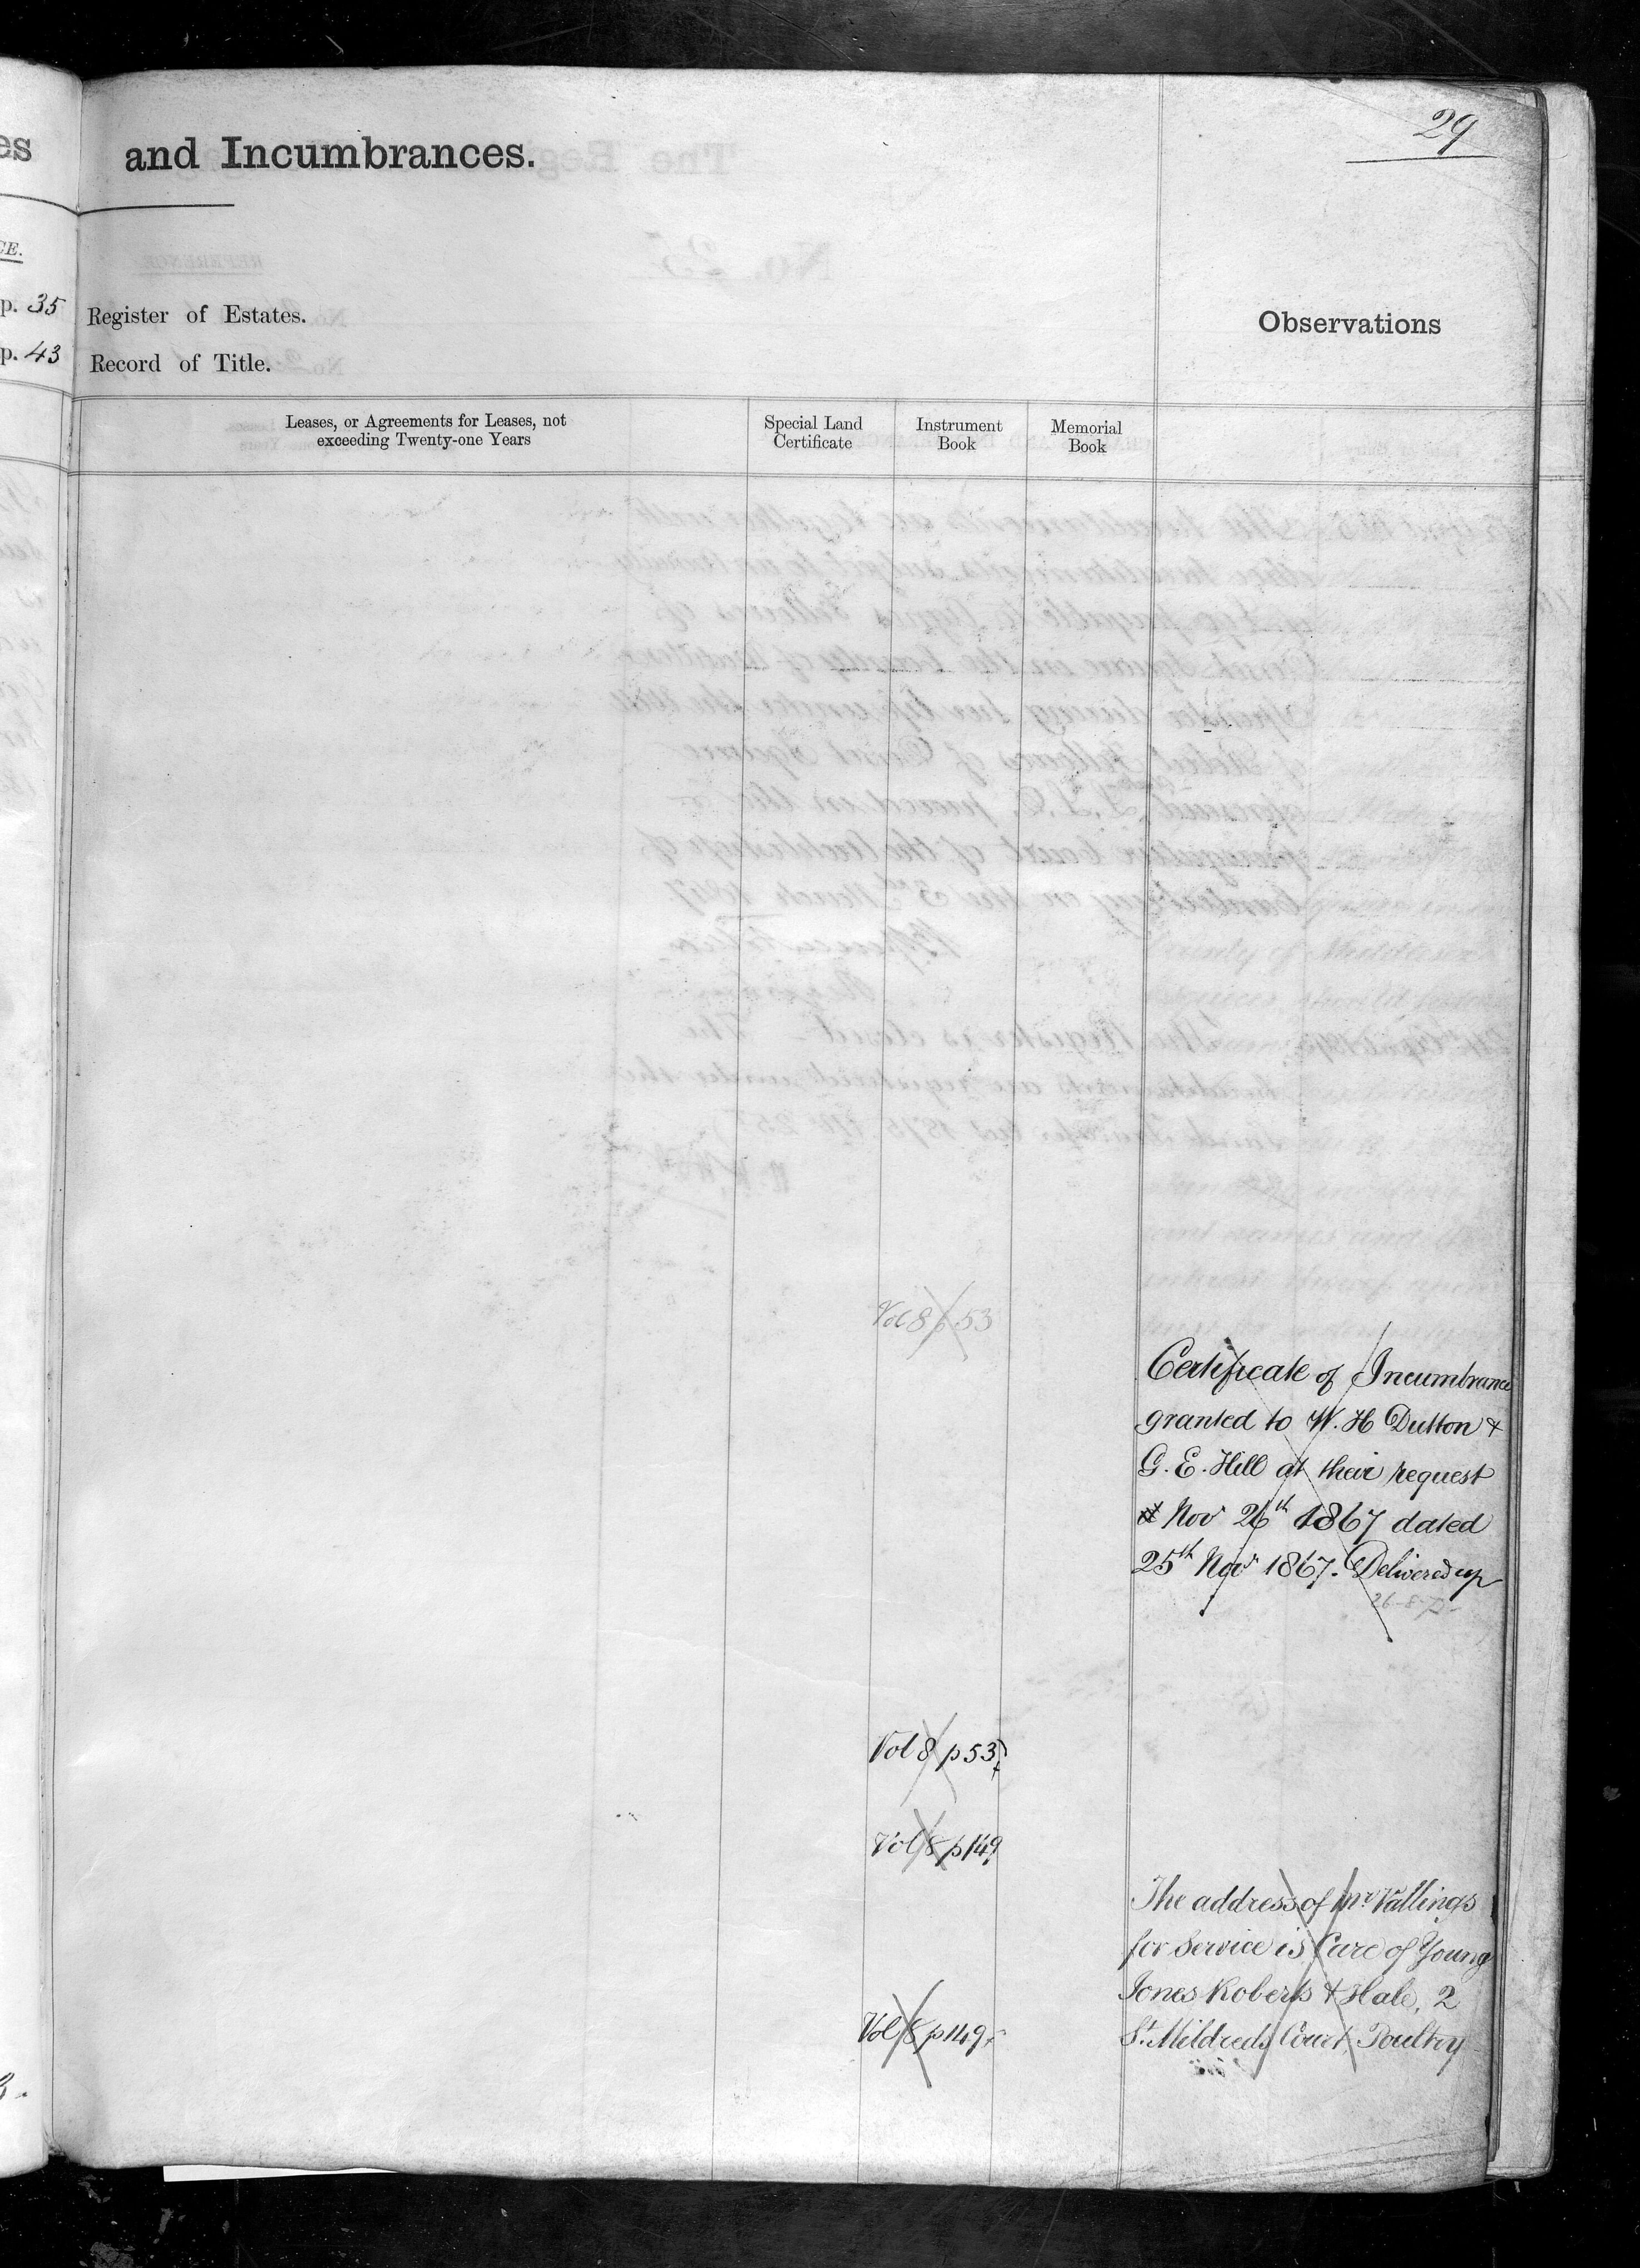 29
es and Incumbrances.
CE.
p. 35 Register of Estates.
p. 43 Record of Title.
Observations
Leases, or Agreements for Leases, not
exceeding Twenty-one Years
Special Land
Certificate
Instrument
Book
Memorial
Book
Vol 8 p 53
Certificate of Incumbrance
granted to W. H Dutton &
G. E. Hill at their request
Nov 26th 1867 dated
25th Nov 1867. Delivered up
Vol 8 p 53
Vol 8 p 149
The address of Mr Vallings
for Service is Care of Young
Jones Roberts & Hale, 2
Vol 8 p 149
St. Mildreds Court Poultry